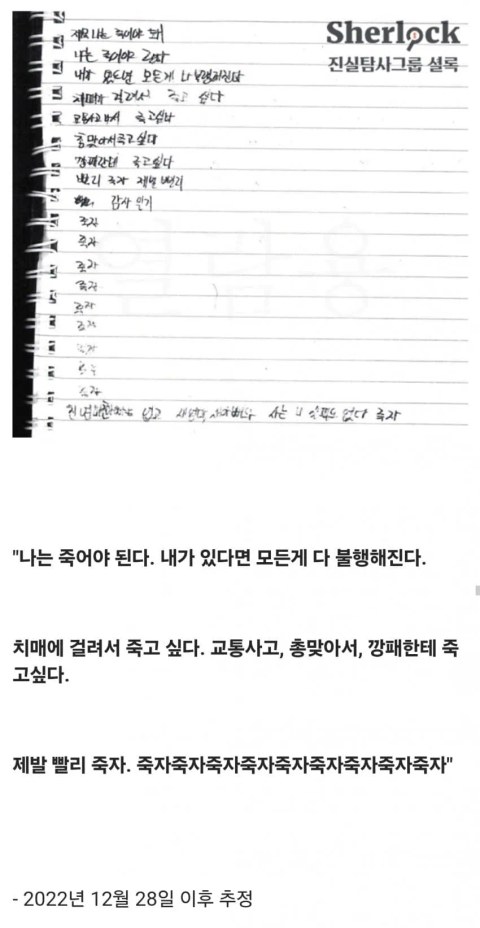 Sherlock
진실탐사그룹 셜록
나는 죽어야 돼
나는 죽어야 된다
내가 있다면 모든게 다 불행해진다
치매에 걸려서 죽고 싶다
교통사고 나서 죽고싶다
총맞아서 죽고싶다
깡패한테 죽고싶다
빨리 죽자 제발 빨리
죽자
죽자
죽자
죽자
죽자
죽자
죽자
죽자
없고 사는 없다 죽자
"나는 죽어야 된다. 내가 있다면 모든게 다 불행해진다.
치매에 걸려서 죽고 싶다. 교통사고, 총맞아서, 깡패한테 죽
고싶다.
제발 빨리 죽자. 죽자죽자죽자죽자죽자죽자죽자죽자죽자"
- 2022년 12월 28일 이후 추정